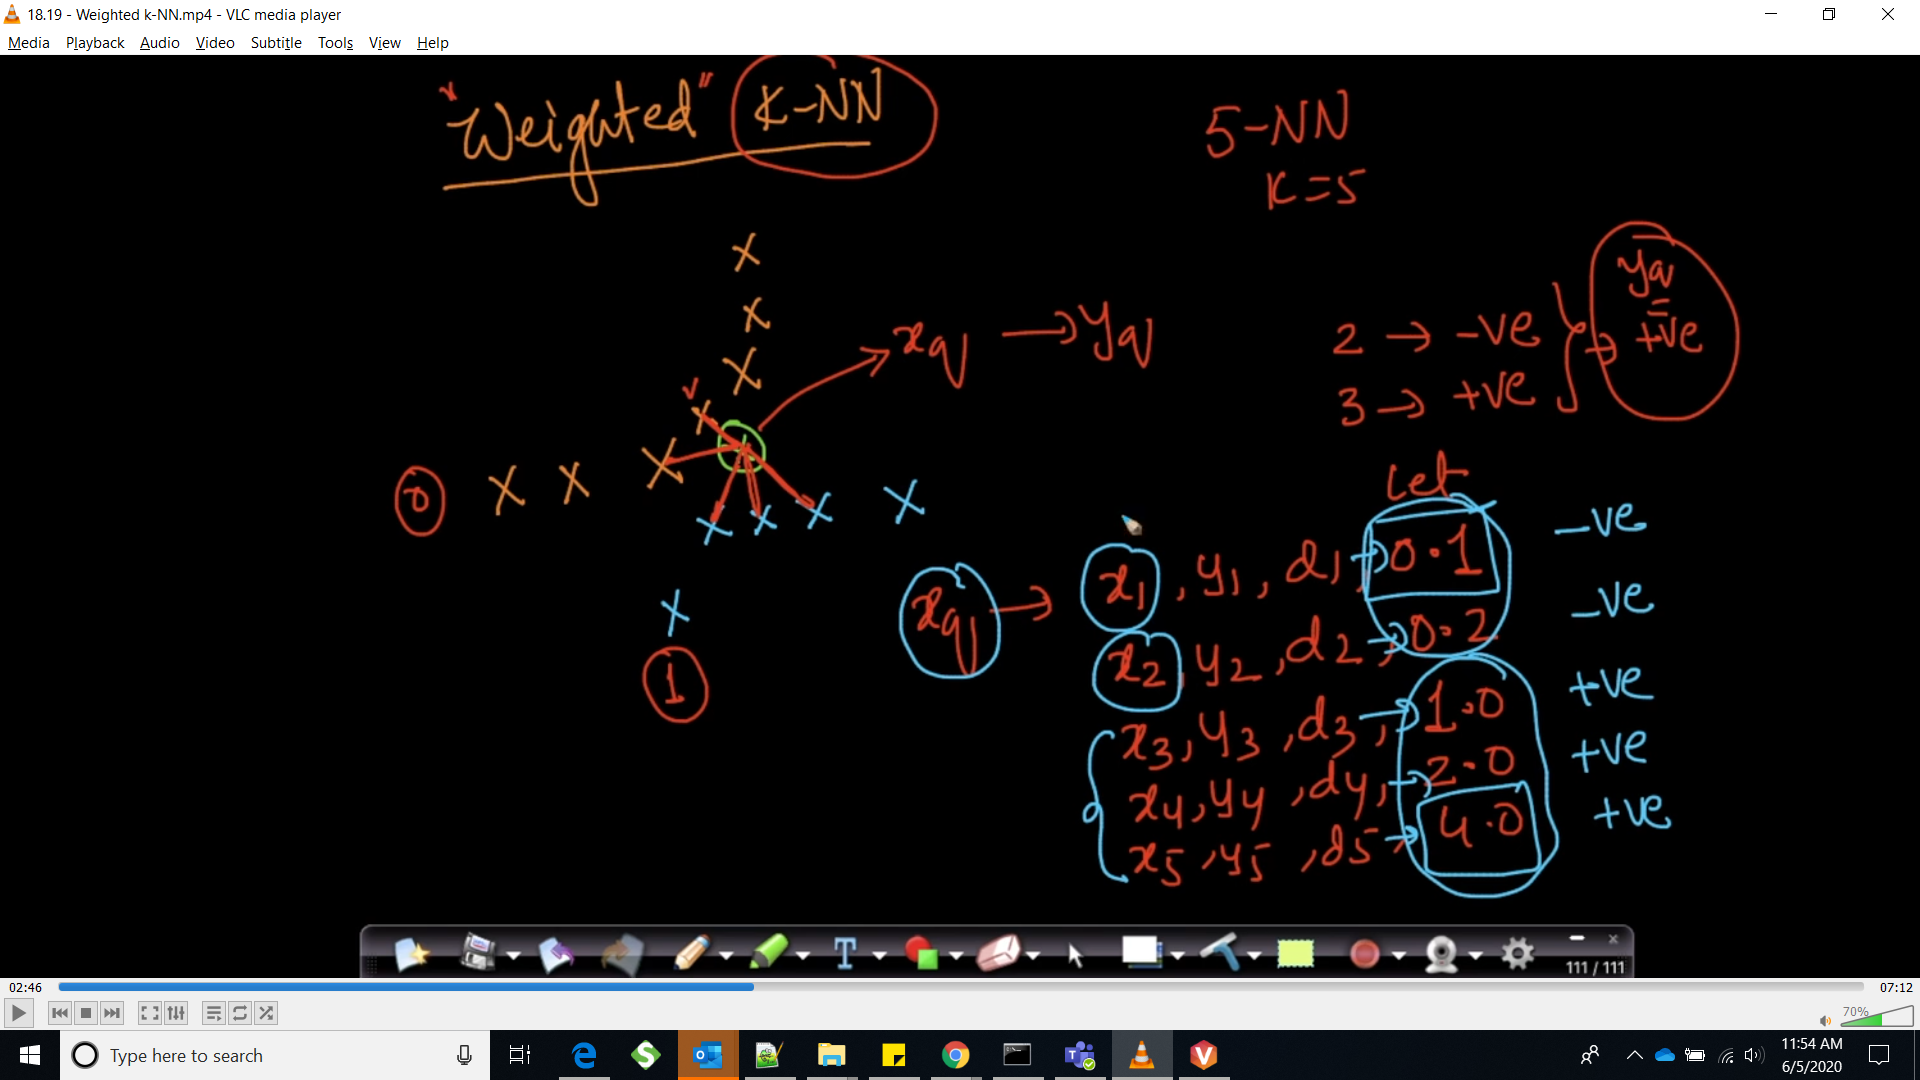 18.19 - Weighted k-NN.mp4 - VLC media player
Media Playback Audio Video Subtitle Tools View Help
"Weighted" K-NN
5-NN
K=5
xq → yq
2 → -ve
3 → +ve
yq = +ve
0
1
Let
xq → x1, y1, d1, → 0.1 -ve
x2, y2, d2, → 0.2 -ve
x3, y3, d3, → 1.0 +ve
x4, y4, d4, → 2.0 +ve
x5, y5, d5 → 4.0 +ve
111 / 111
02:46
07:12
70%
Type here to search
11:54 AM
6/5/2020